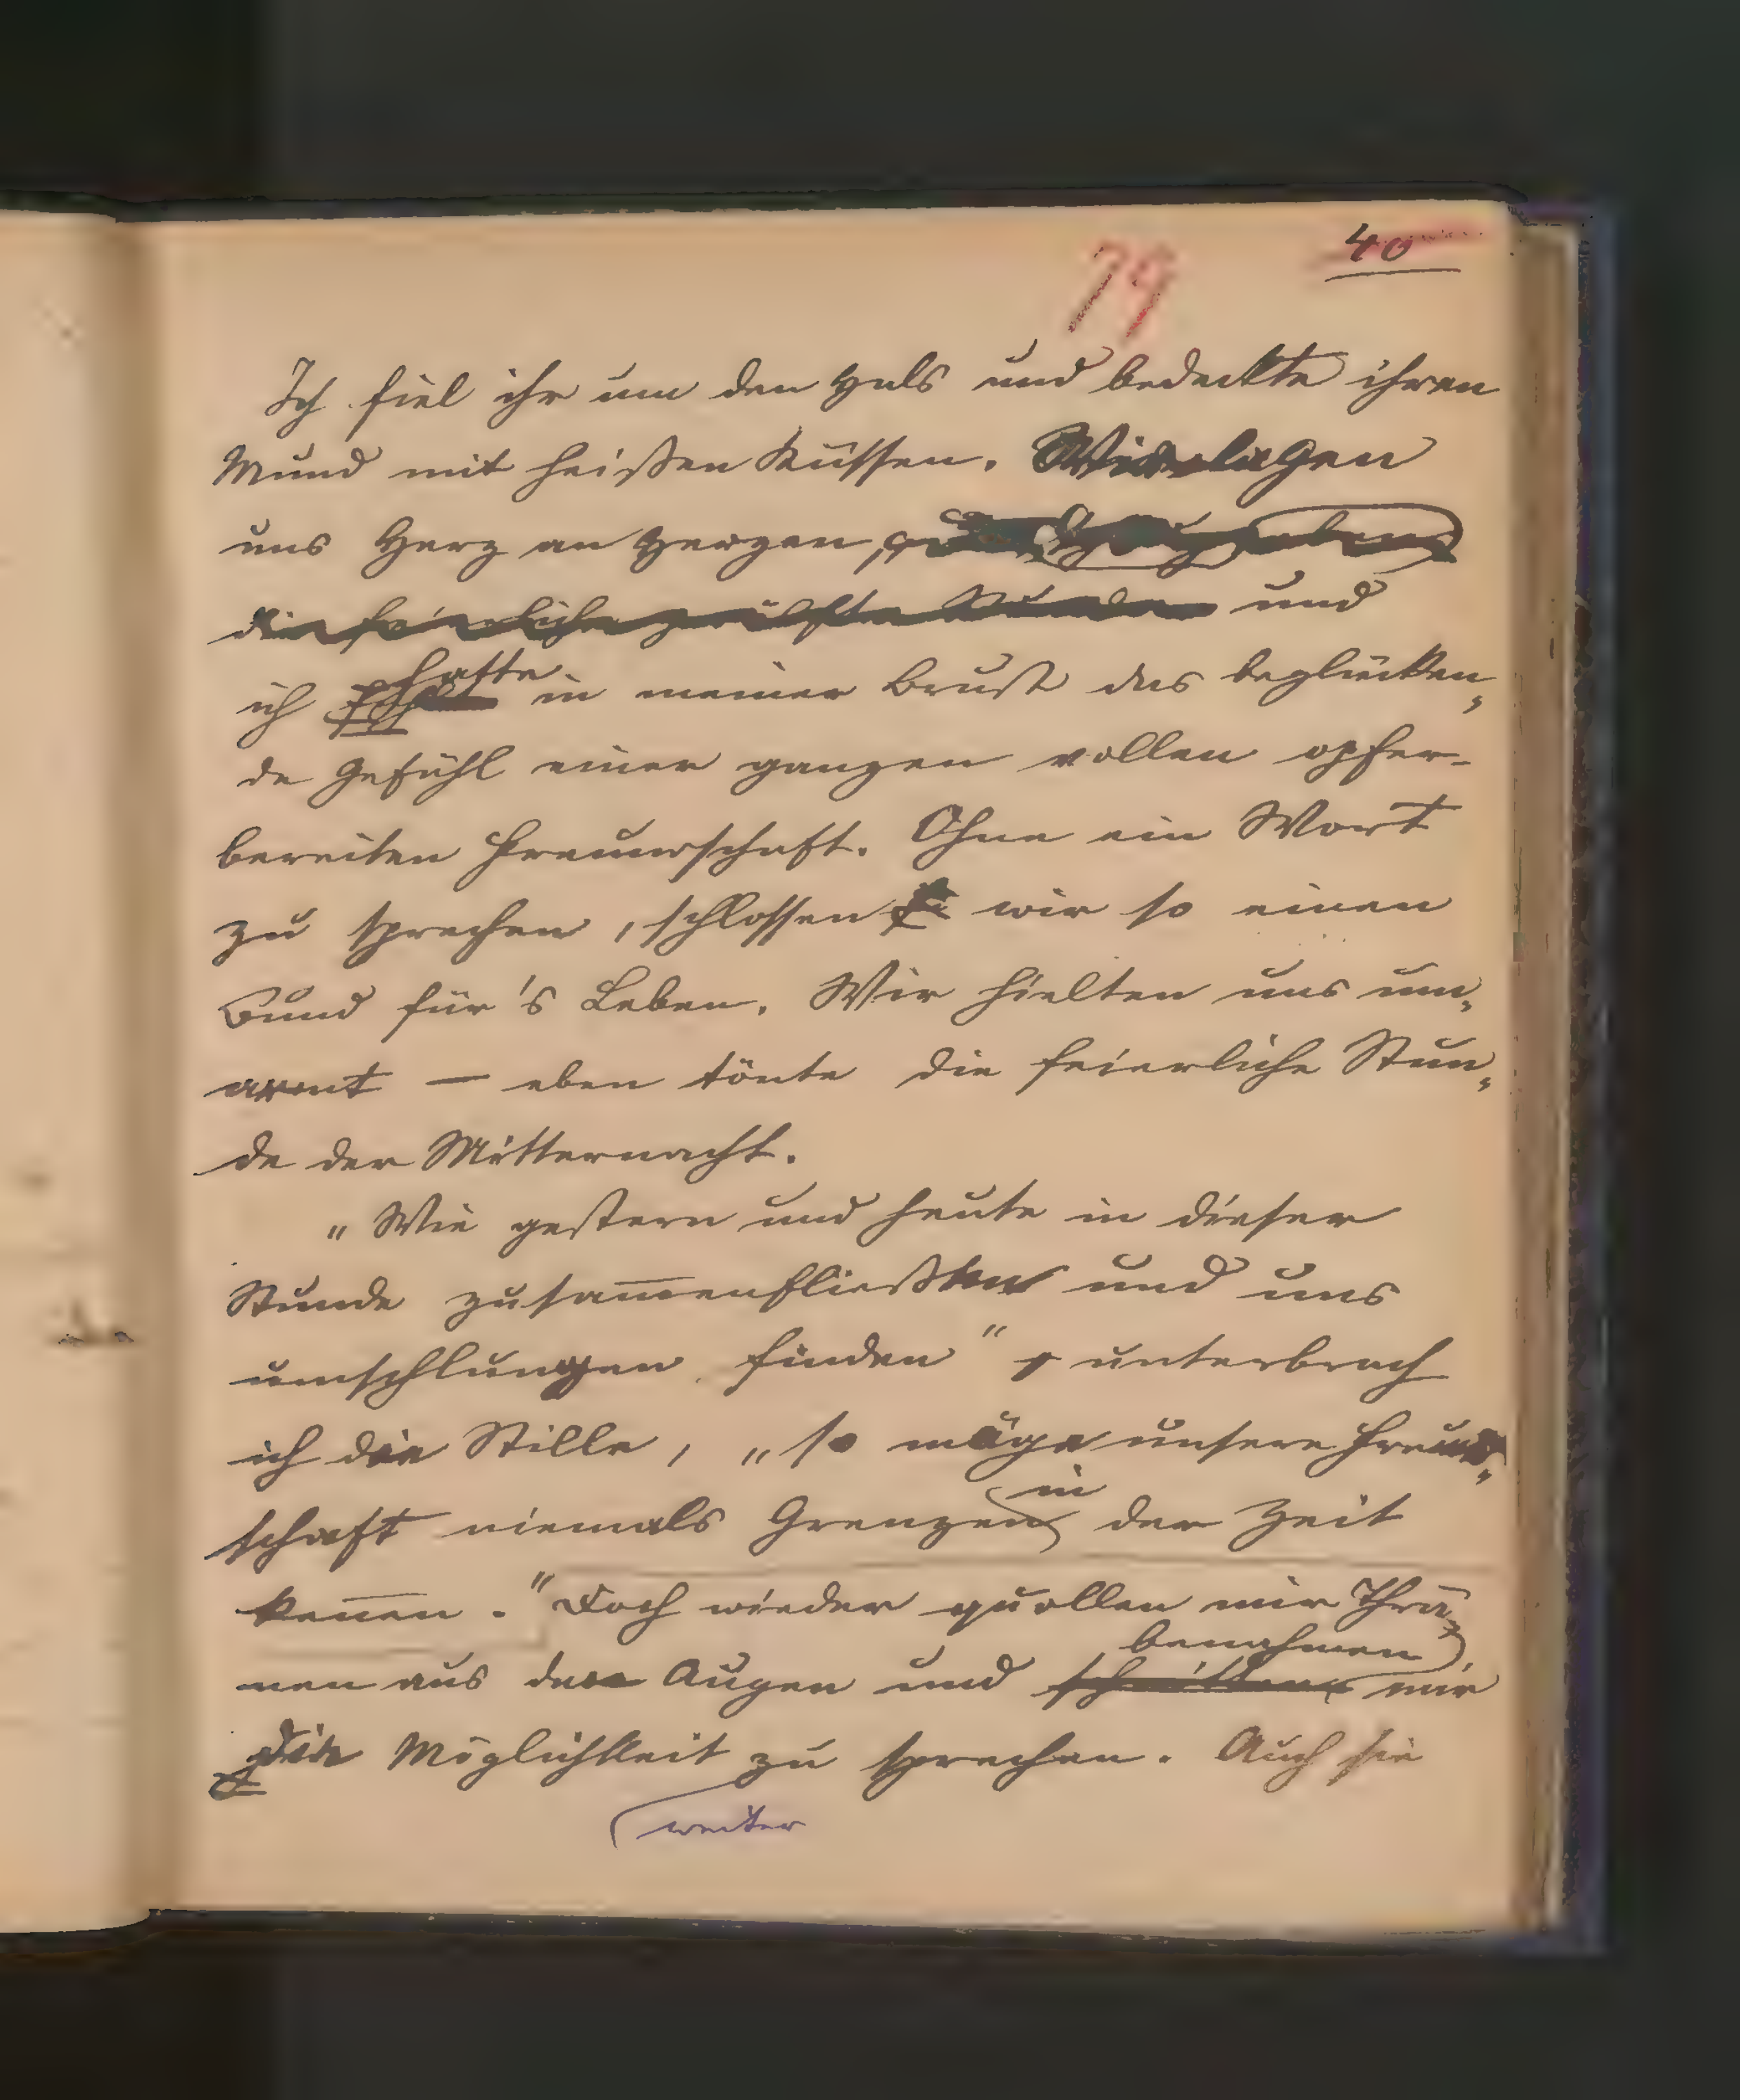 40
79
Ich fiel ihr um den Hals und bedeckte ihren
Mund mit heißen Küssen. Wir lagen
uns Herz an Herzen,
die feierliche zwölfte Stunde und
hatte
ich in meiner Brust das beglücken„
de Gefühl einer ganzen vollen opfer-
bereiten Freundschaft. Ohne ein Wort
zu sprechen, schlossen wir so einen
Bund für's Leben. Wir hielten uns um„
armt — eben tönte die feierliche Stun„
de der Mitternacht.
„Wie gestern und heute in dieser
Stunde zusam̅enfließen und uns
umschlungen finden", unterbrach
ich die Stille, „so möge unsere Freund„
in
schaft niemals Grenzen der Zeit
ken̅en." Doch wieder quollen mir Thrä„
benahmen
nen aus den Augen und schnitten mir
die Möglichkeit zu sprechen. Auch sie
weiter